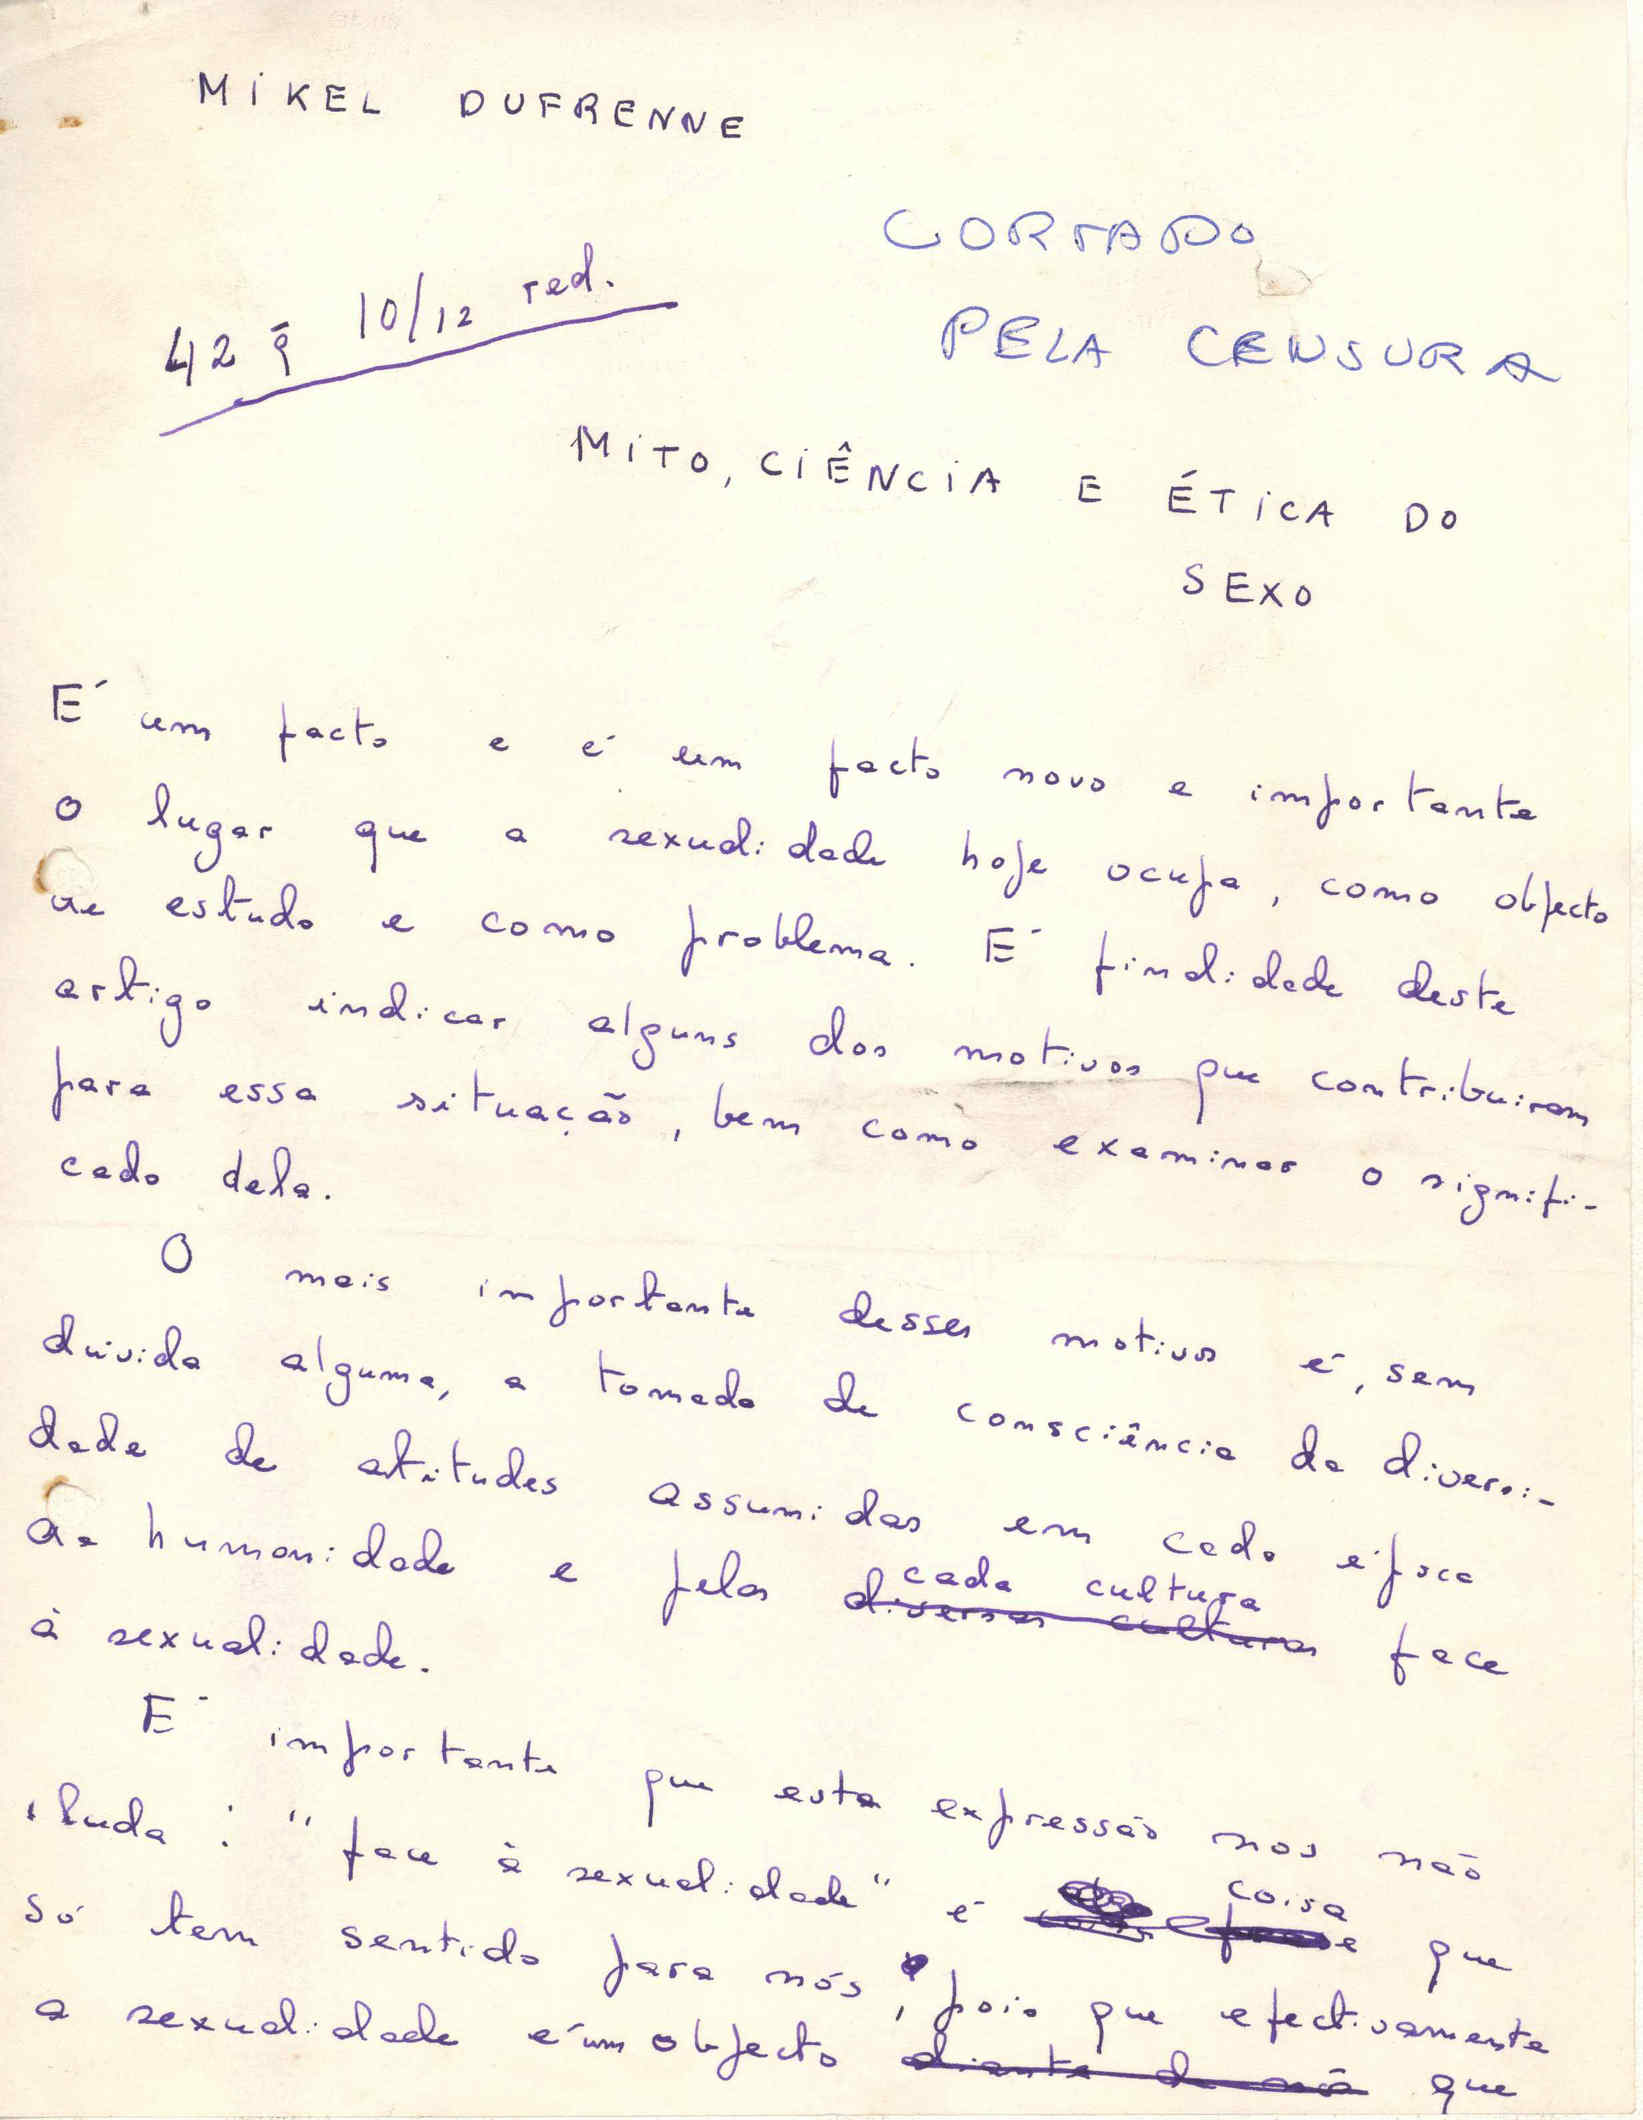 MIKEL DUFRENNE
CORTADO
PELA CENSURA
42 q 10/12 red.
MITO, CIÊNCIA E ÉTICA DO
SEXO
É um facto e é um facto novo e importante
o lugar que a sexualidade hoje ocupa, como objecto
de estudo e como problema. É finalidade deste
artigo indicar alguns dos motivos que contribuiram
para essa situação, bem como examinar o signifi-
cado dela.
O mais importante desses motivos é, sem
dúvida alguma, a tomada de consciência da diversi-
dade de atitudes assumidas em cada época
da humanidade e pelas diversas culturas cada cultura face
à sexualidade.
É importante que esta expressão nos não
iluda: "face à sexualidade" é coisa que
só tem sentido para nós, pois que efectivamente
a sexualidade é um objecto diante de nós que